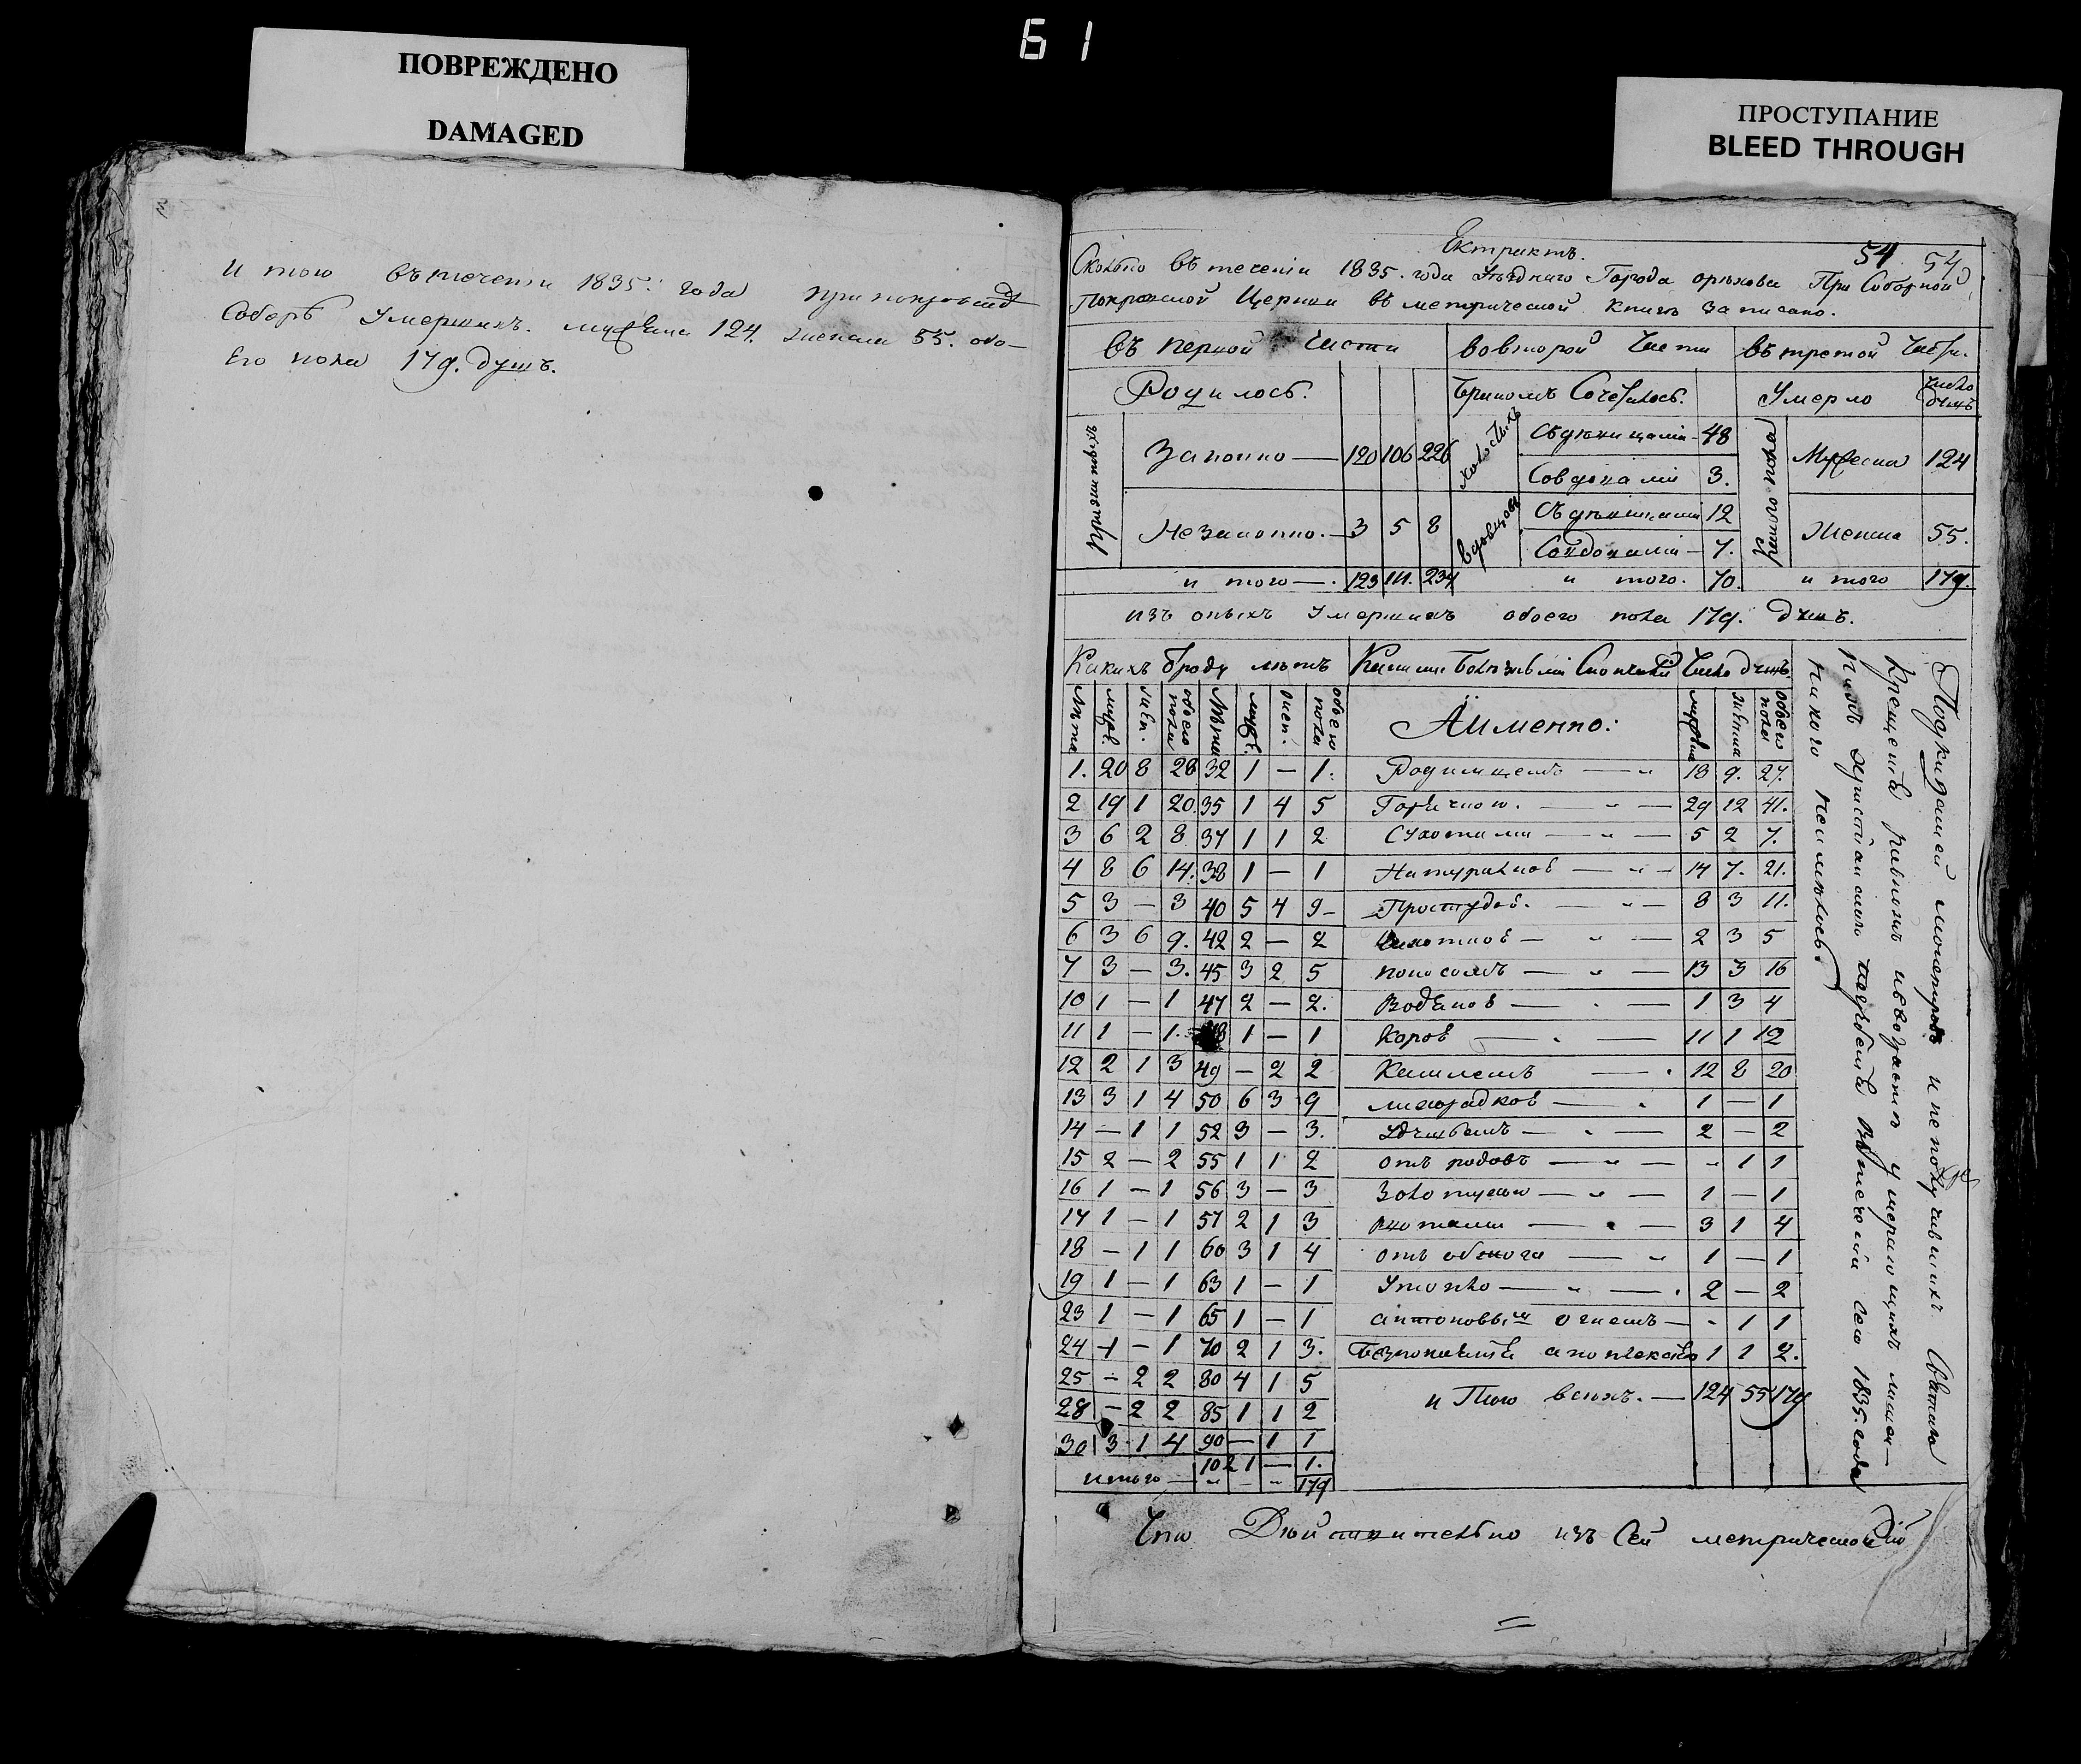 61
ПОВРЕЖДЕНО
DAMAGED
ПРОСТУПАНИЕ
BLEED THROUGH
И того въ течении 1835: года при покровской
Соборѣ Умершихъ. мужеска 124. женска 55. обо-
его пола 179. душъ.
54 54
Екстрактъ.
Сколько въ течении 1835. года Уѣзднаго Города орѣхова При Соборной
Покровской Церкви въ метрической книгѣ записано.
въ первой Части во второй Части въ третой Части.
Родилось. бракомъ Сочеталось. Умерло число душъ
Законно — 120 106 226 холостыхъ Съ дѣвицами — 48 Мужеска 124
Со вдовами 3.
Незаконно. — 3 5 8 вдовцовъ Съ дѣвицами 12 Женска 55.
Со вдовами — 7.
и того — . 123 111. 234 и того. 70. и того 179.
изъ оныхъ Умершихъ обоего пола 179. душъ.
Какихъ лѣтъ Какими Болезньми Скончались Число душъ
Лѣта муж. жен. обоего пола Лѣта муж. жен. обоего пола Аименно: мужеска женска обоего пола
1. 20 8 28 32 1 — 1. Родимцемъ — 18 9. 27.
2 19 1 20. 35 1 4 5 Горячкою. — 29 12 41.
3 6 2 8. 37 1 1 2. Сухотами — 5 2 7.
4 8 6 14. 38 1 — 1 Натуральной — 14 7. 21.
5 3 — 3 40 5 4 9 — Простудой. — 8 3 11.
6 3 6 9. 42 2 — 2 Чихоткой — 2 3 5
7 3 — 3. 45 3 2 5 поносомъ — 13 3 16
10 1 — 1 47 2 — 2. Водяной — 1 3 4
11 1 — 1. 48 1 — 1 Корой — 11 1 12
12 2 1 3 49 — 2 2 Кашлемъ — 12 8 20
13 3 1 4 50 6 3 9 лихорадкой — 1 — 1
14 — 1 1 52 3 — 3. Удушьемъ — 2 — 2
15 2 — 2 55 1 1 2 отъ родовъ — 1 1
16 1 — 1 56 3 — 3 Золотухою — 1 — 1
17 1 — 1 57 2 1 3 — 3 1 4
18 — 1 1 60 3 1 4 отъ — 1 — 1
19 1 — 1 63 1 — 1 Утопло — 2 — 2
23 1 — 1 65 1 — 1 антоновымъ огнемъ — 1 1
24 1 — 1 70 2 1 3. 1 1 2.
25 — 2 2 80 4 1 5 и Того всѣхъ. — 124 55 179
28 — 2 2 85 1 1 2
30 3 1 4 90 — 1 1
102 1 — 1.
итого — 179
Подкидашей и неполучившихъ Святаго
Крещенія умершихъ
Никого неимѣлось. въ течении сего 1835. года
Что Дѣйствительно изъ Сей метрической